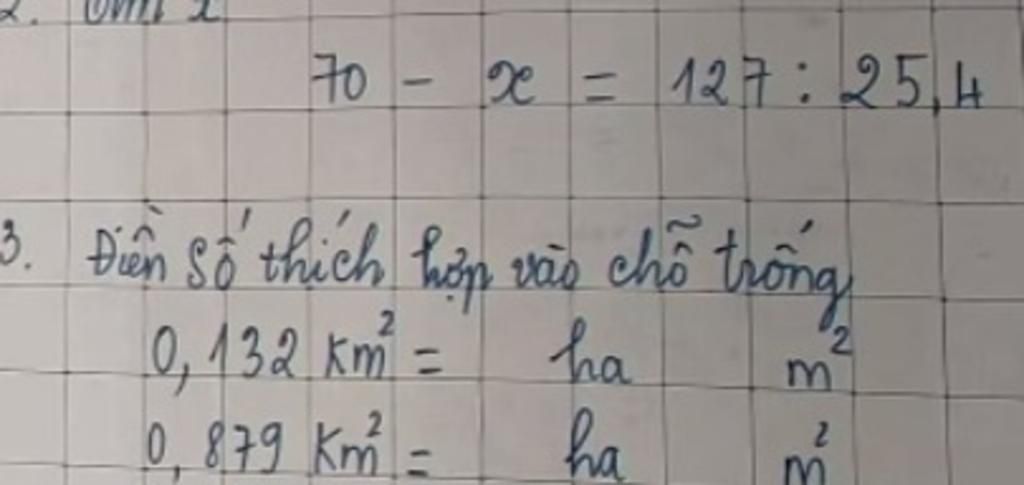 2. Tìm x
70 - x = 127 : 25,4
3. Điền số thích hợp vào chỗ trống
0,132 km² = ha m²
0,879 km² = ha m²